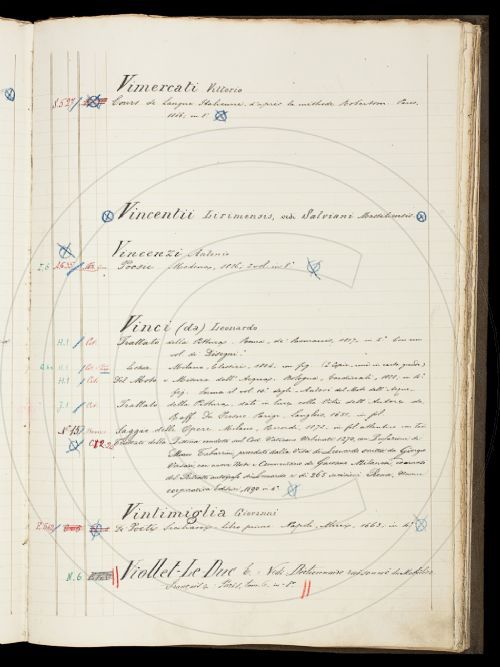 Vimercati Vittorio
S.527 Cours de langue Italienne, d'après la méthode Robertson. Paris,
1856, in 8°
Vincentii Lirinensis, vid. Salviani Massiliensis
Vincenzi Antonio
I.6 Poesie. Modena, 1816, 2 vol. in 8°
Vinci (da) Leonardo
H.1 Cod. Trattato della Pittura. Roma, de Romanis, 1817, in 4° con un
vol. di Disegni
Lo stesso. Milano, Classici, 1804, con fig. (2 Copie, una in carta grande)
H.1 Del Moto e Misura dell'Acqua. Bologna, Cardinali, 1828, in 4°
fig. Forma il vol 10° degli Autori del Moto dell'Acque.
J.1 Trattato della Pittura, dato in luce colla Vita dell'Autore da
Raff. Du Fresne. Parigi, Langlois, 1651, in fol.
Saggio delle Opere. Milano, 1872, in fol.
Trattato della Pittura condotto sul Cod. Vaticano Urbinate 1270, con Prefazione di
Marco Tabarrini, preceduto dalla Vita di Leonardo scritta da Giorgio
Vasari con nuove Note e Commentario di Gaetano Milanesi,
del Ritratto autografo di Leonardo e di 265 incisioni. Roma, Unione
cooperativa Editrice, 1890 in 8°
Vintimiglia Giovanni
De Poeti Siciliani. Libro primo. Napoli, 1663, in 4°
N.6 Viollet-Le Duc E. Vedi Dictionnaire raisonné du Mobilier
Français. Paris, Tom. 6. in 8°